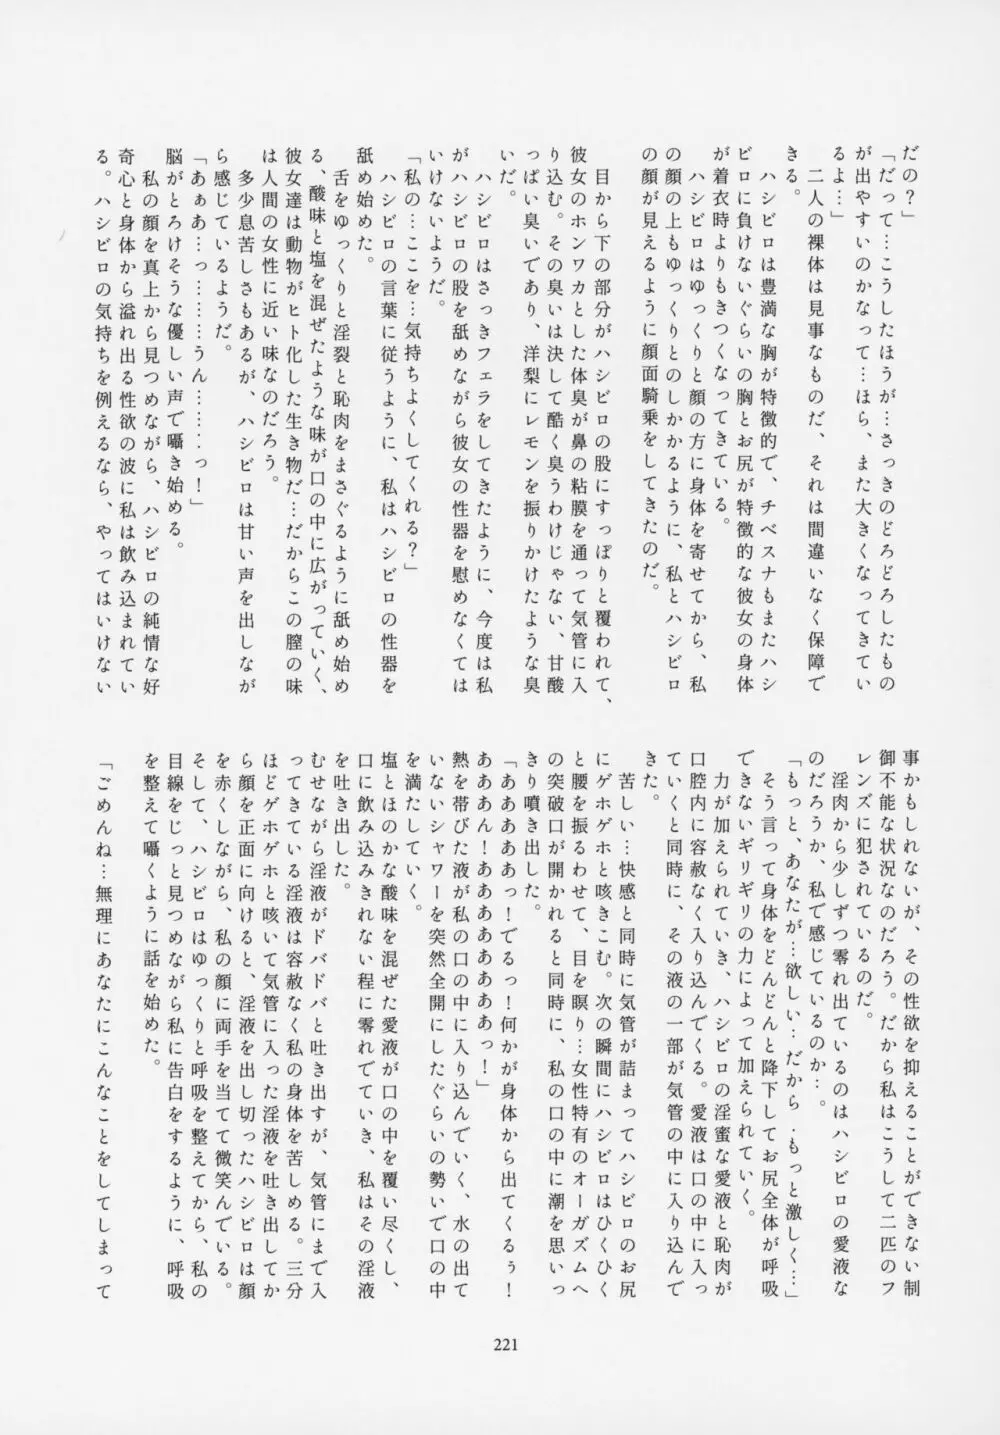 だの？」
「だって…こうしたほうが…さっきのどろどろしたもの
が出やすいのかなって…ほら、また大きくなってきてい
るよ…」
二人の裸体は見事なものだ、それは間違いなく保障で
きる。
ハシビロは豊満な胸が特徴的で、チベスナもまたハシ
ビロに負けないぐらいの胸とお尻が特徴的な彼女の身体
が着衣時よりもきつくなってきている。
ハシビロはゆっくりと顔の方に身体を寄せてから、私
の顔の上もゆっくりとのしかかるように、私とハシビロ
の顔が見えるように顔面騎乗をしてきたのだ。
目から下の部分がハシビロの股にすっぽりと覆われて、
彼女のホンワカとした体臭が鼻の粘膜を通って気管に入
り込む。その臭いは決して酷く臭うわけじゃない、甘酸
っぱい臭いであり、洋梨にレモンを振りかけたような臭
いだ。
ハシビロはさっきフェラをしてきたように、今度は私
がハシビロの股を舐めながら彼女の性器を慰めなくては
いけないようだ。
「私の…ここを…気持ちよくしてくれる？」
ハシビロの言葉に従うように、私はハシビロの性器を
舐め始めた。
舌をゆっくりと淫裂と恥肉をまさぐるように舐め始め
る、酸味と塩を混ぜたような味が口の中に広がっていく、
彼女達は動物がヒト化した生き物だ…だからこの膣の味
は人間の女性に近い味なのだろう。
多少息苦しさもあるが、ハシビロは甘い声を出しなが
ら感じているようだ。
「あぁあ…っ…………うん…………っ！」
脳がとろけそうな優しい声で囁き始める。
私の顔を真上から見つめながら、ハシビロの純情な好
奇心と身体から溢れ出る性欲の波に私は飲み込まれてい
る。ハシビロの気持ちを例えるなら、やってはいけない
事かもしれないが、その性欲を抑えることができない制
御不能な状況なのだろう。だから私はこうして二匹のフ
レンズに犯されているのだ。
淫肉から少しずつ零れ出ているのはハシビロの愛液な
のだろうか、私で感じているのか…。
「もっと、あなたが…欲しい…だから…もっと激しく…」
そう言って身体をどんどんと降下してお尻全体が呼吸
できないギリギリの力によって加えられていく。
力が加えられていき、ハシビロの淫蜜な愛液と恥肉が
口腔内に容赦なく入り込んでくる。愛液は口の中に入っ
ていくと同時に、その液の一部が気管の中に入り込んで
きた。
苦しい…快感と同時に気管が詰まってハシビロのお尻
にゲホゲホと咳きこむ。次の瞬間にハシビロはひくひく
と腰を振るわせて、目を瞑り…女性特有のオーガズムへ
の突破口が開かれると同時に、私の口の中に潮を思いっ
きり噴き出した。
「あああああっ！でるっ！何かが身体から出てくるぅ！
あああん！ああああああああっ！」
熱を帯びた液が私の口の中に入り込んでいく、水の出て
いないシャワーを突然全開にしたぐらいの勢いで口の中
を満たしていく。
塩とほのかな酸味を混ぜた愛液が口の中を覆い尽くし、
口に飲み込みきれない程に零れでていき、私はその淫液
を吐き出した。
むせながら淫液がドバドバと吐き出すが、気管にまで入
ってきている淫液は容赦なく私の身体を苦しめる。三分
ほどゲホゲホと咳いて気管に入った淫液を吐き出してか
ら顔を正面に向けると、淫液を出し切ったハシビロは顔
を赤くしながら、私の顔に両手を当てて微笑んでいる。
そして、ハシビロはゆっくりと呼吸を整えてから、私の
目線をじっと見つめながら私に告白をするように、呼吸
を整えて囁くように話を始めた。
「ごめんね…無理にあなたにこんなことをしてしまって
221